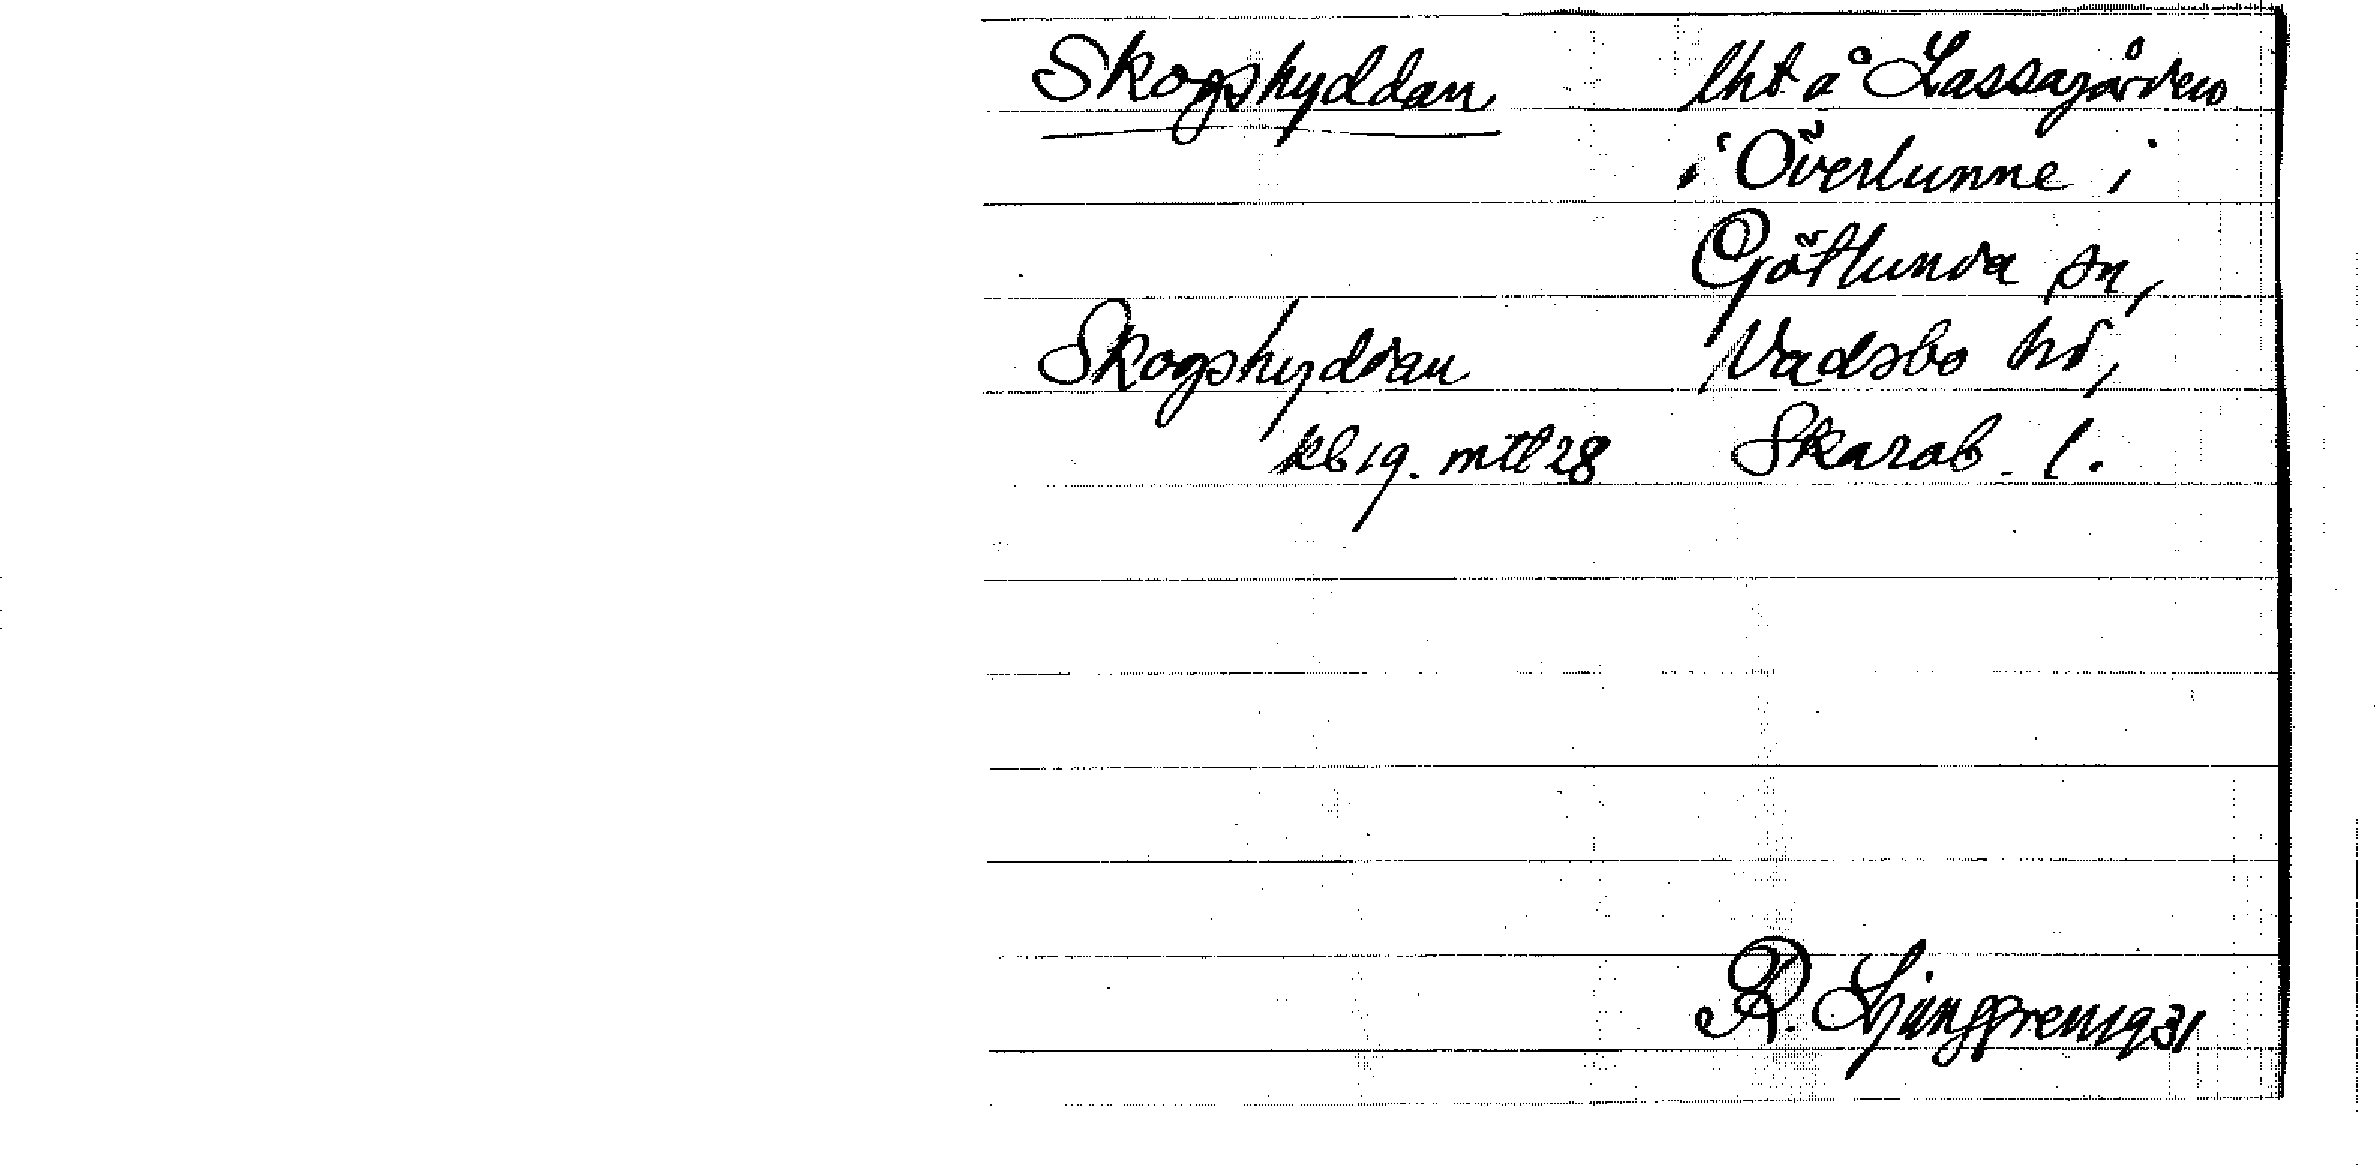 Skogshyddan
lht å Lassagården
i Överlunne i
Götlunda sn,
Skogshyddan
Vadsbo hd,
kb 19. mtl 28
Skarab. l.
R. Ljunggren 1931